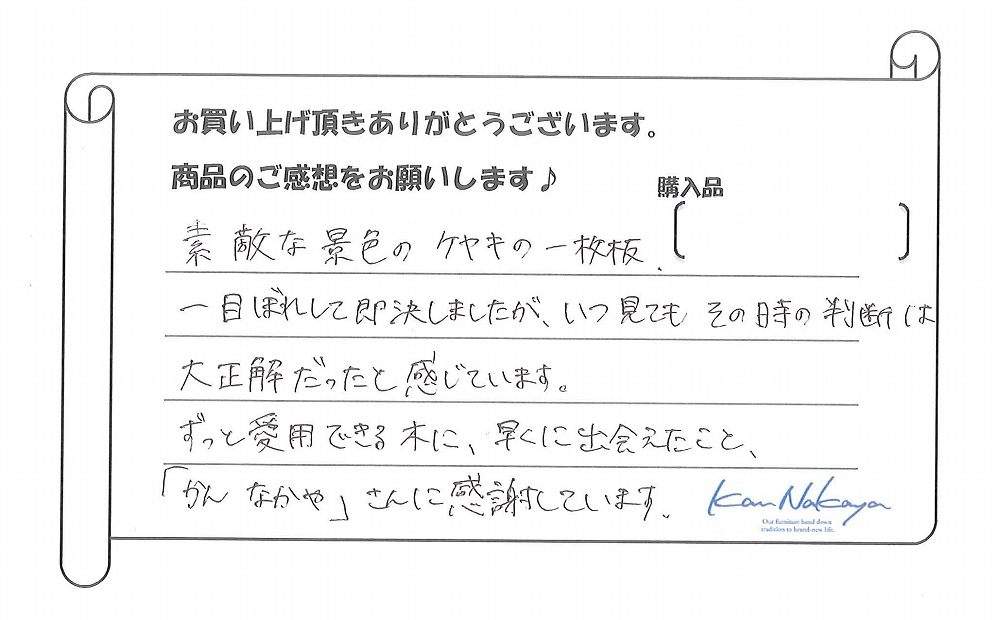 お買い上げ頂きありがとうございます。
商品のご感想をお願いします♪
購入品
素敵な景色のケヤキの一枚板、
一目ぼれして即決しましたが、いつ見てもその時の判断は
大正解だったと感じています。
ずっと愛用できる木に、早くに出会えたこと、
「かんなかや」さんに感謝しています。
Kan Nakaya
Our furniture hand down
tradition to brand-new life.